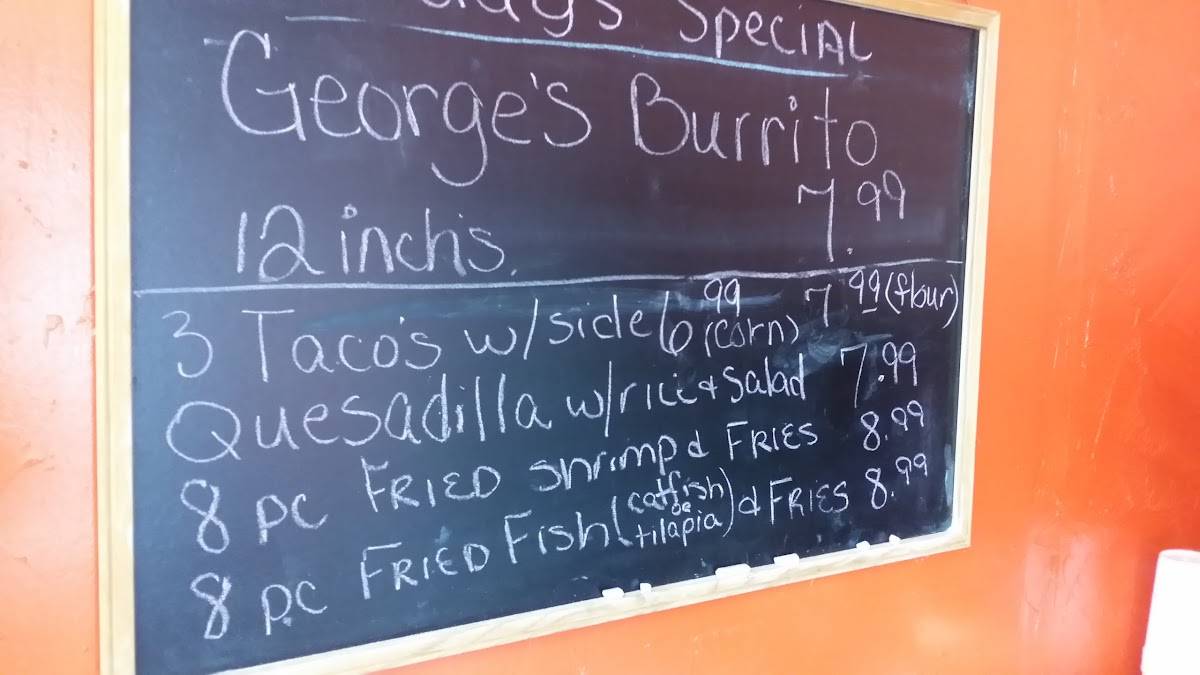 days Special
George's Burrito
12 inch's. 7.99
3 Taco's w/side 6 99 (corn) 7 99 (flour)
Quesadilla w/rice & Salad 7.99
8 pc Fried shrimp & Fries 8.99
8 pc Fried Fish (catfish or tilapia) & Fries 8.99